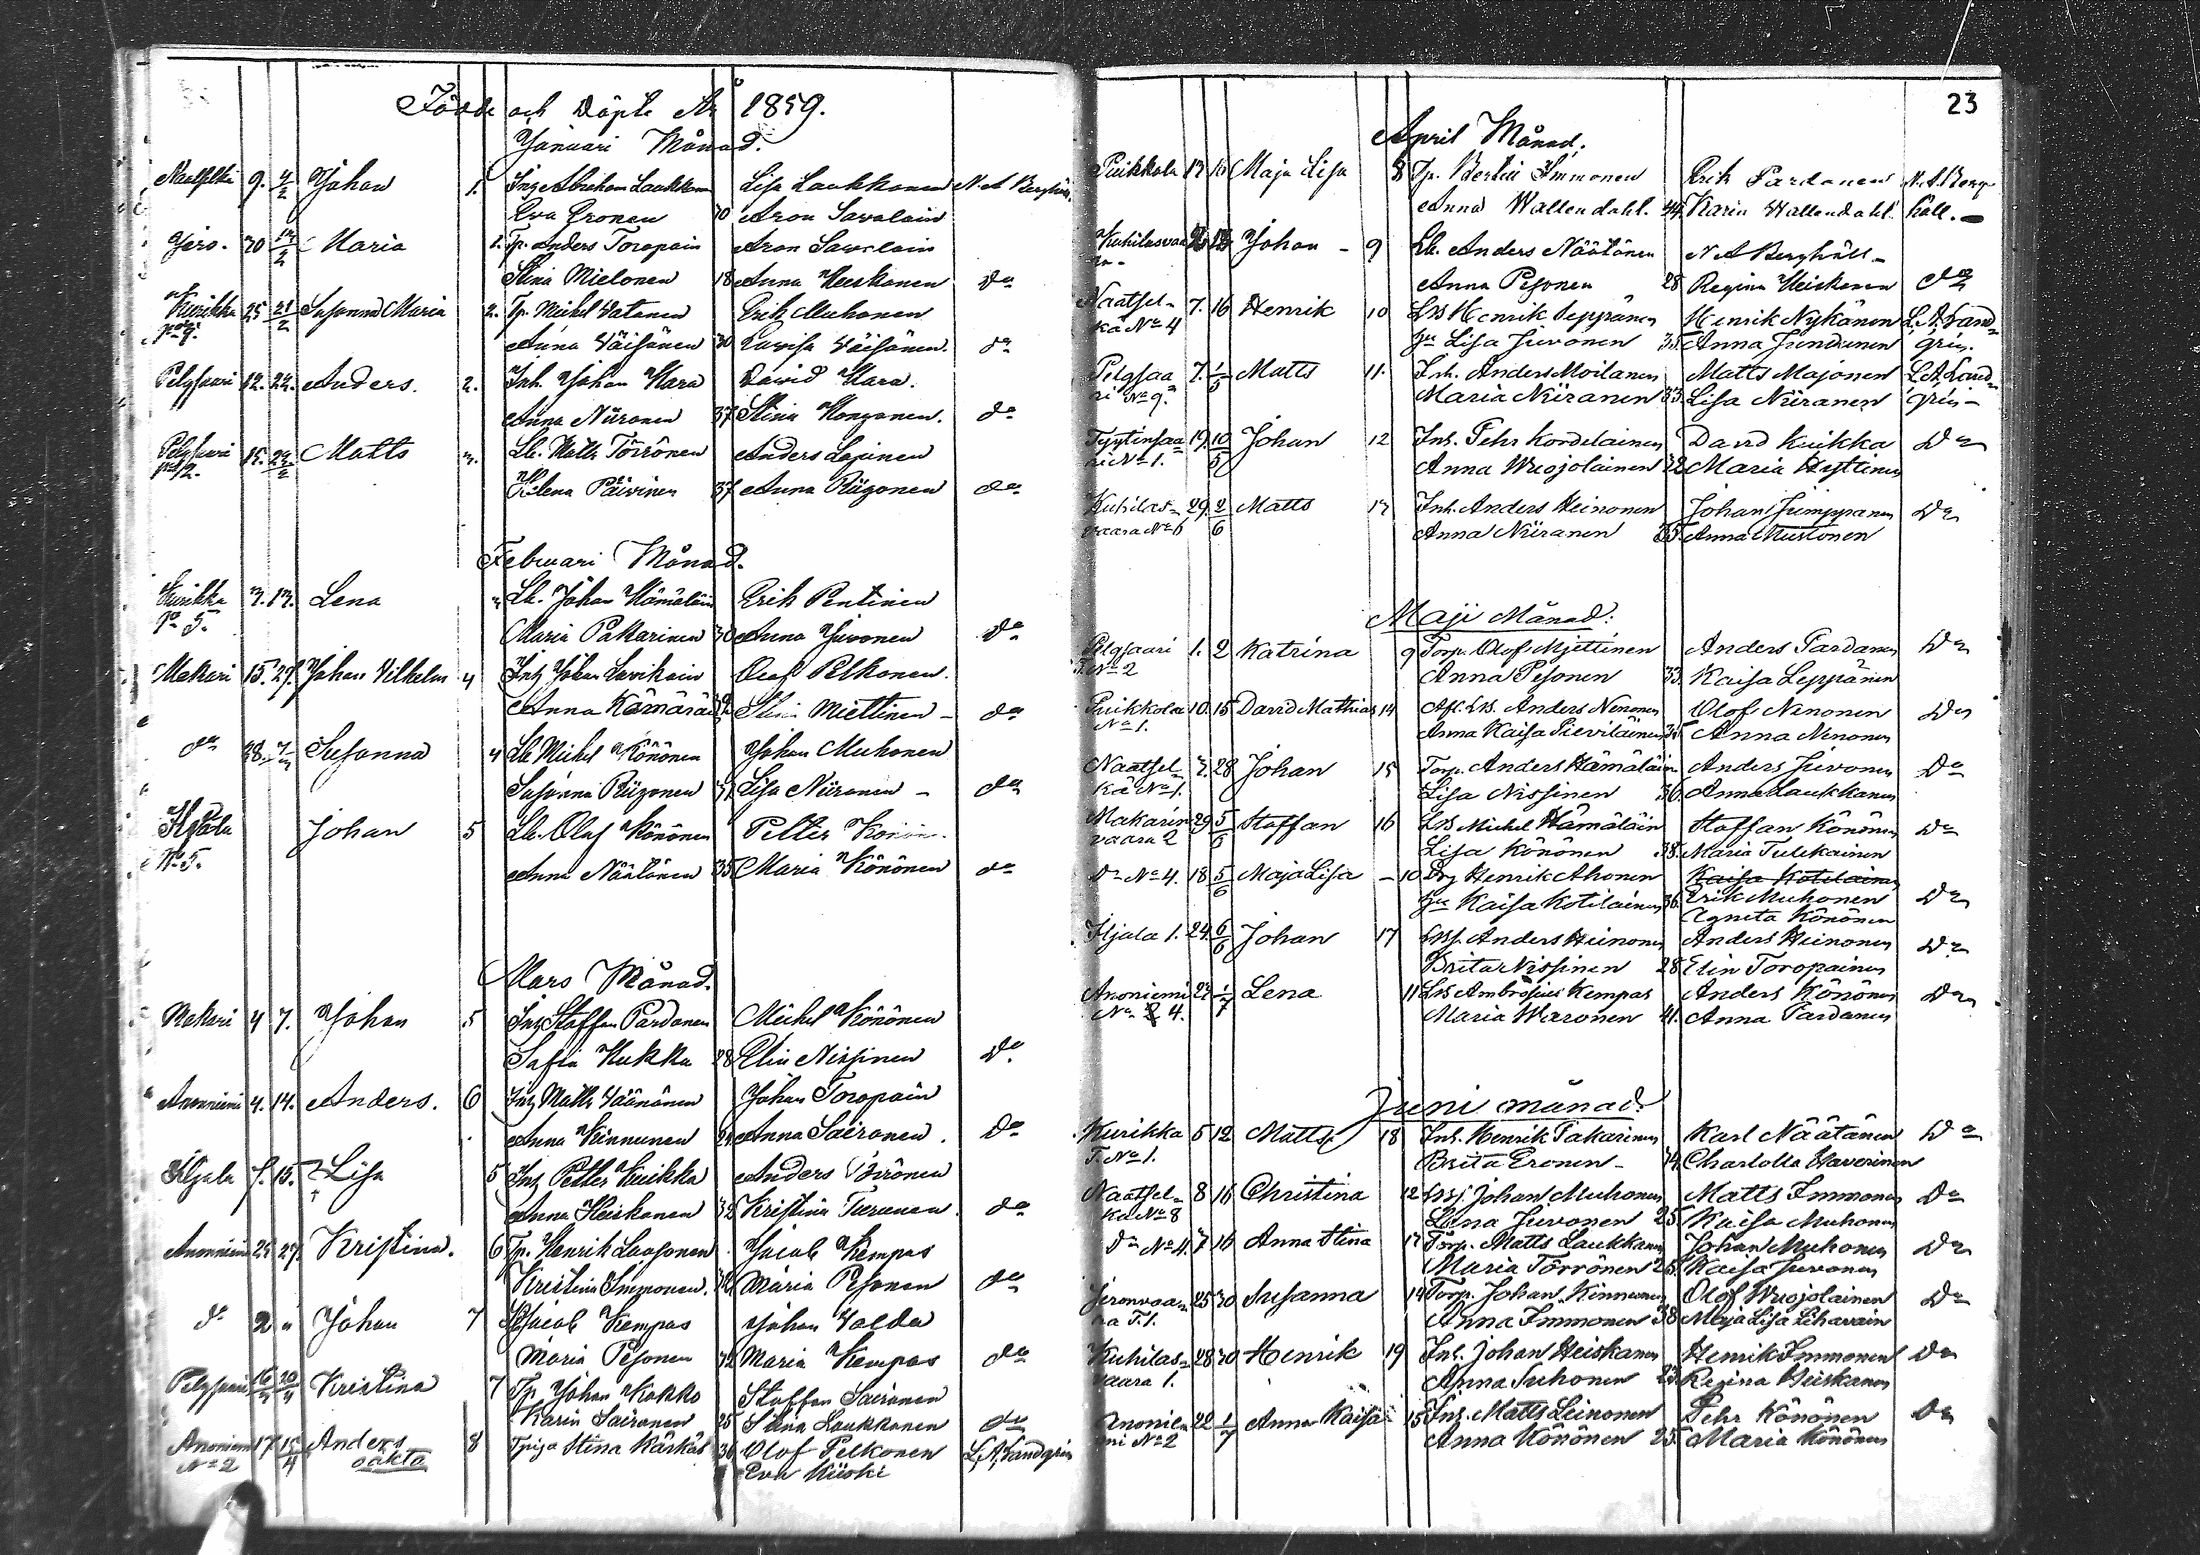 Födde och Döpte År 1859.
Januari Månad.
9. 4/2 Johan 1. Inh Abraham Laukkan Lisa Laukkanen N. A Berghäll
Eva Eronen 30 Aron Savolain
Jero. 30 13/2 Maria 1. Tp. Anders Toropain Aron Savolain
Stina Mielonen 18 Anna Heiskanen do
Kurikka 25 21/2 Susanna Maria 2. Tp. Michel Vatanen Erik Muhonen
No 9. Anna Väisänen 30 Lovisa Väisänen. do
Pelgjaari 12. 22. Anders. 2. Inh. Johan Kara David Kara.
Anna Niiranen 37 Stina Kongonen. do
Pelgjaari 15. Matts 3. Lb. Matts Törrönen Anders Lajunen
No 2. Helena Päivinen 37 Anna Riigonen do
Februari Månad.
Kurikka 3. 13. Lena Lb. Johan Hämäläin Erik Pentinen
No 5. Maria Pakarinen 30 Anna Juvonen do
Makari 15. 27. Johan Vilhelm 4 Inh Johan Lavikain Olof Pelkonen.
Anna Kämäräi Stina Miettinen - do
do 28. Susanna 4 Lb Michel Könönen Johan Muhonen
Susanna Riigonen 37 Lisa Niiranen - do
Iljala Johan 5 Lb. Olof Könönen Petter Könön.
No 5. Anna Näätänen 35 Maria Könönen do
Mars Månad.
Makari 4 7. Johan 5 Inh Staffan Pardanen Michel Könönen
Sofia Kukka 28 Elin Nissinen do
Anonniemi 4. 14. Anders. 6 Inh Matts Väänänen Johan Toropain
Anna Kinnunen Anna Sairanen. do
Iljala 15. Lisa 5 Inh Petter Kuikka Anders Törrönen
Anna Heiskanen 32 Kristina Turunen. do
Anonniemi 25 27. Kristina. 6 Tp. Henrik Laasonen Jacob Kempas
Kristina Immonen. Maria Pesonen do
do 2 " Johan 7 Jacob Kempas Johan Valda
Maria Pesonen 32 Maria Kempas do
Pelgjaari 20/4 Kristina 7 Tp. Johan Kokko Staffan Sairanen
Karin Sairanen 25 Stina Laukkanen do
Anoniem 17 15/4 Anders 8 Tpiga Stina Kärkäs 36 Olof Pelkonen L. A. Landgrén
No 2 oäkta Eva Kiiski
23
April Månad.
Puikkola 13 16 Maja Lisa 8 Tp. Bertil Immonen Erik Pardanen N. A. Berg
Anna Wallendahl. 44. Karin Wallendahl. häll. -
Kuhilasvaa Johan - 9 Lb. Anders Näätänen N A Berghäll -
ra - Anna Pesonen 28 Regina Heiskanen do
Naatsel- 7. 16 Henrik 10 Lbs Henrik Seppänen Henrik Nykänen L. A. Land-
kä No 4 Lisa Juvonen 35. Anna Jundunen grén.
Pelgjaa 7. 1/5 Matts 11. Inh. Anders Moilanen Matts Majonen L. A. Land-
ri No 9. Maria Niiranen 33. Lisa Niiranen grén -
Tyytinsaa 19. 10/5 Johan 12 Inh. Pehr Kordelainen David Kuikka Do
ri No 1. Anna Wuojolainen 32 Maria Hyttinen
Kuhilas- 29. 2/6 Matts 13 Inh. Anders Heinonen Johan Jumppanen Do
vaara No 6 Anna Niiranen 35. Anna Mustonen
Maji Månad.
Pelgjaari 1. 2 Katrina 9 Torp. Olof Mjettinen Anders Pardanen Do
T. No 2 Anna Pesonen 33. Kaisa Leppänen
Puikkola 10. 15 David Mathias 14 Afl. Lbs. Anders Nenonen Olof Nenonen Do
No 1. Anna Kaisa Pieviläinen 35 Anna Nenonen
Naatsel- 3. 28 Johan 15 Torp. Anders Hämäläinen Anders Juvonen Do
kä No 1. Lisa Nissinen 36. Anna Laukkanen
Makarin 29 5/6 Staffan 16 Lbs Michel Hämäläin Staffan Könönen Do
vaara 2 Lisa Könönen 38. Maria Tulikainen
Do No 4. 18 5/6 Maja Lisa - 10 Henrik Ahonen Kaisa Kotilainen
Kaisa Kotilainen 36. Erik Muhonen Do
Agneta Könönen
Iljala 1. 24. 6/6 Johan 17 Anders Heinonen Anders Heinonen Do
Brita Nissinen 28 Elin Toropainen
Anoniemi 23 1/7 Lena 11 Lbs Ambrosius Kempas Anders Könönen Do
No 4. Maria Waronen 41. Anna Pardanen
Juni månad.
Kurikka 5 12 Matts 18 Inh. Henrik Pakarinen Karl Näätänen Do
T. No 1. Brita Eronen - 34. Charlotta Haverinen
Naatsel- 8 16 Christina 12 Johan Muhonen Matts Immonen Do
kä No 8 Lena Juvonen 25 Kaisa Muhonen
Do No 4. 7 16 Anna Stina 13 Torp. Matts Laukkanen Johan Muhonen Do
Maria Törrönen 25. Kaisa Juvonen
Jeronvaa- 25 30 Susanna 14 Torp. Johan Kinnunen Olof Wuojolainen Do
ra T. 1. Anna Immonen 38 Maja Lisa Lihavain
Kuhilas- 28 30 Henrik 19 Inh. Johan Heiskanen Henrik Immonen Do
vaara 1. Anna Suhonen 23. Regina Heiskanen
Anonie- 22 1/7 Anna Kaisa 15 Inh. Matts Leinonen Pehr Könönen Do
mi No 2 Anna Könönen 25 Maria Könönen